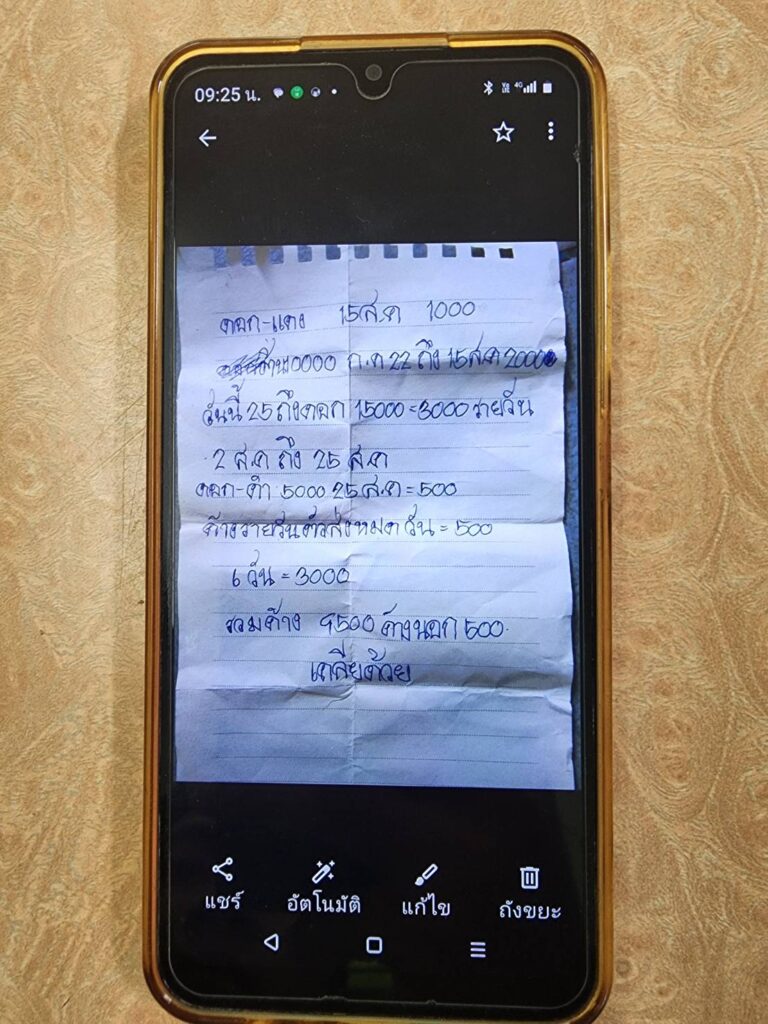 09:25 น.
ดอก-แดง 15ส.ค 1000
0000 ก.ค 22 ถึง 15ส.ค 2000
วันนี้ 25 ถึงดอก 15000=3000 รายวัน
2 ส.ค ถึง 25 ส.ค
ดอก-ดำ 5000 25 ส.ค=500
ค้างรายวันตัวส่งหมด วัน=500
6 วัน=3000
รวมค้าง 9500 ค้างนอก 500.
เคลียด้วย
แชร์ อัตโนมัติ แก้ไข ถังขยะ